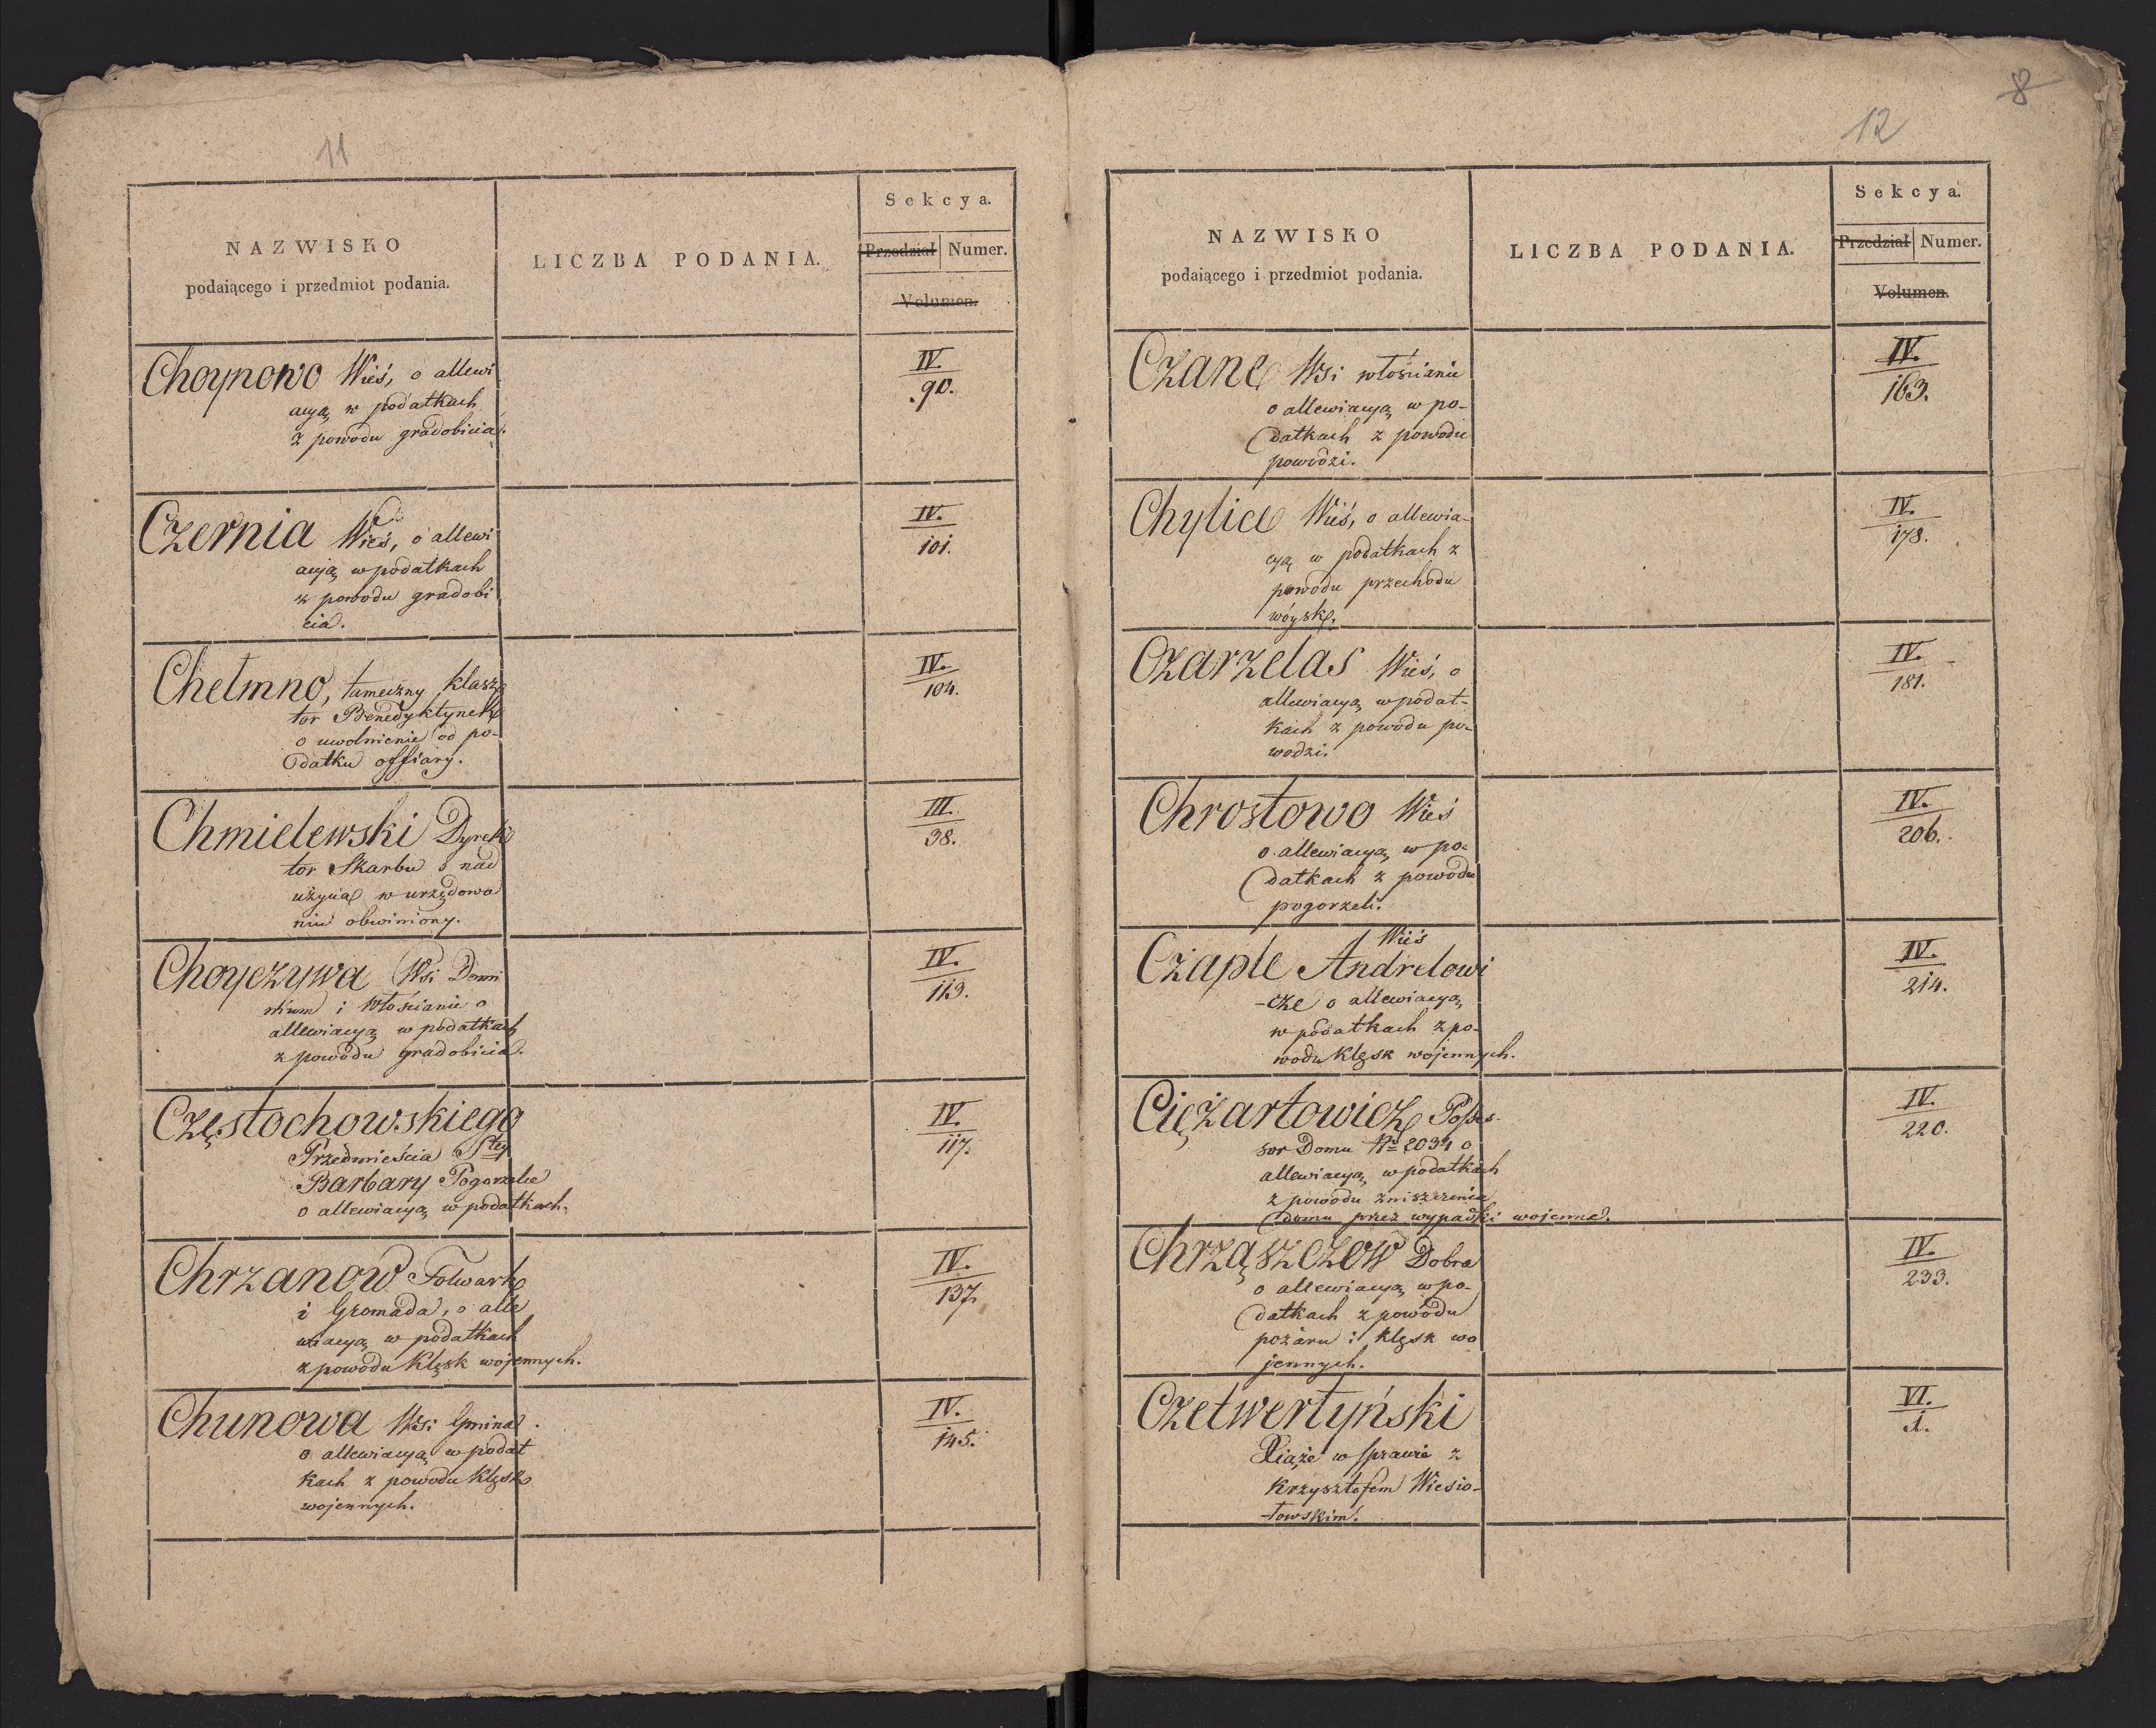 11
NAZWISKO
podaiącego i przedmiot podania.
LICZBA PODANIA.
Sekcya.
Przedział Numer.
Volumen.
Choynowo Wieś, o allewi
acyą w podatkach
z powodu gradobicia.
IV.
90.
Czernia Wieś, o allewi
acyą w podatkach
z powodu gradobi
cia.
IV.
101.
Chełmno, tameczny klasz
tor Benedyktynek
o uwolnienie od po-
datku offiary.
IV.
104.
Chmielewski Dyrek
tor Skarbu o nad
użycia w urzędowa
niu obwiniony.
III.
38.
Choyczywa Wsi Domi
nium i Włościanie o
allewiacyą w podatkach
z powodu gradobicia.
IV.
113.
Częstochowskiego
Przedmieścia Stey
Barbary Pogorzelce
o allewiacyą w podatkach.
IV.
117.
Chrzanow Folwark
i Gromada, o alle
wiacyą w podatkach
z powodu klęsk wojennych.
IV.
137.
Chunowa Wsi Gmina
o allewiacyą w podat
kach z powodu klęsk
wojennych.
IV.
145.
8
12
NAZWISKO
podaiącego i przedmiot podania.
LICZBA PODANIA.
Sekcya.
Przedział Numer.
Volumen.
Czane Wsi włościanie
o allewiacyą w po-
datkach z powodu
powodzi.
IV.
163.
Chylice Wieś, o allewia-
cyą w podatkach z
powodu przechodu
wóysk.
IV.
178.
Czarzelas Wieś, o
allewiacyą w podat-
kach z powodu po-
wodzi.
IV.
181.
Chrostowo Wieś
o allewiacyą w po-
datkach z powodu
pogorzeli.
IV.
206.
Wieś
Czaple Andrelowi
-cze o allewiacyą
w podatkach z po-
wodu klęsk wojennych.
IV.
214.
Ciężartowicz Posses-
sor Domu No 2034 o
allewiacyą w podatkach
z powodu zniszczenia
domu przez wypadki wojenne.
IV.
220.
Chrząszczow Dobra
o allewiacyą w po-
datkach z powodu
pożaru i klęsk wo
jennych.
IV.
233.
Czetwertyński
Xiąże w sprawie z
Krzysztofem Wiesio-
-łowskim.
VI.
1.